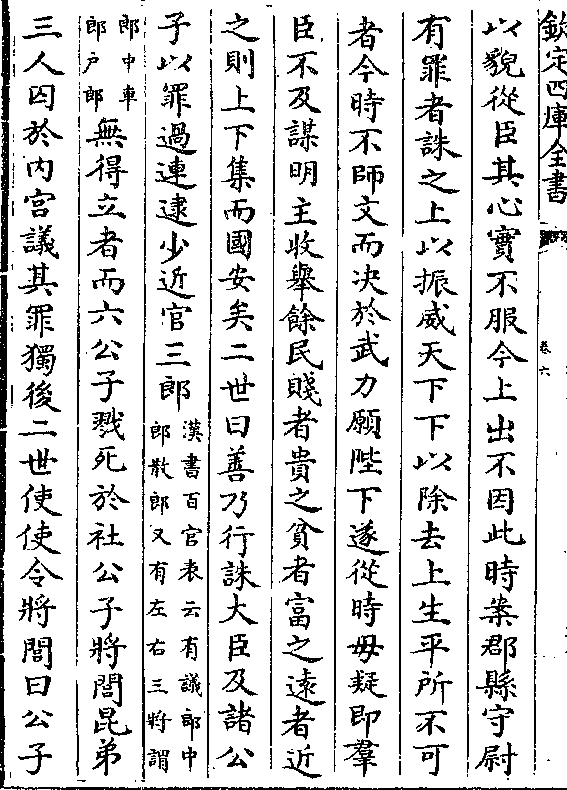 欽定四庫全書
卷六
以貌從臣其心實不服今上出不因此時案郡縣守尉
有罪者誅之上以振威天下下以除去上生平所不可
者今時不師文而决於武力願陛下遂從時毋疑即羣
臣不及謀明主收舉餘民賤者貴之貧者富之遠者近
之則上下集而國安矣二世曰善乃行誅大臣及諸公
子以罪過連逮少近官三郎漢書百官表云有議郎中
郎散郎又有左右三將謂
郎中車
郎户郎無得立者而六公子戮死於社公子將閭昆弟
三人囚於内宫議其罪獨後二世使使令將閭曰公子